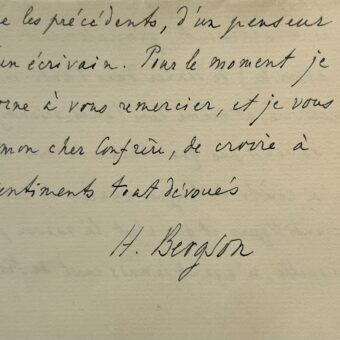 e les précédents, d'un penseur
'un écrivain. Pour le moment je
orne à vous remercier, et je vous
mon cher Confrère, de croire à
entiments tout dévoués
H. Bergson